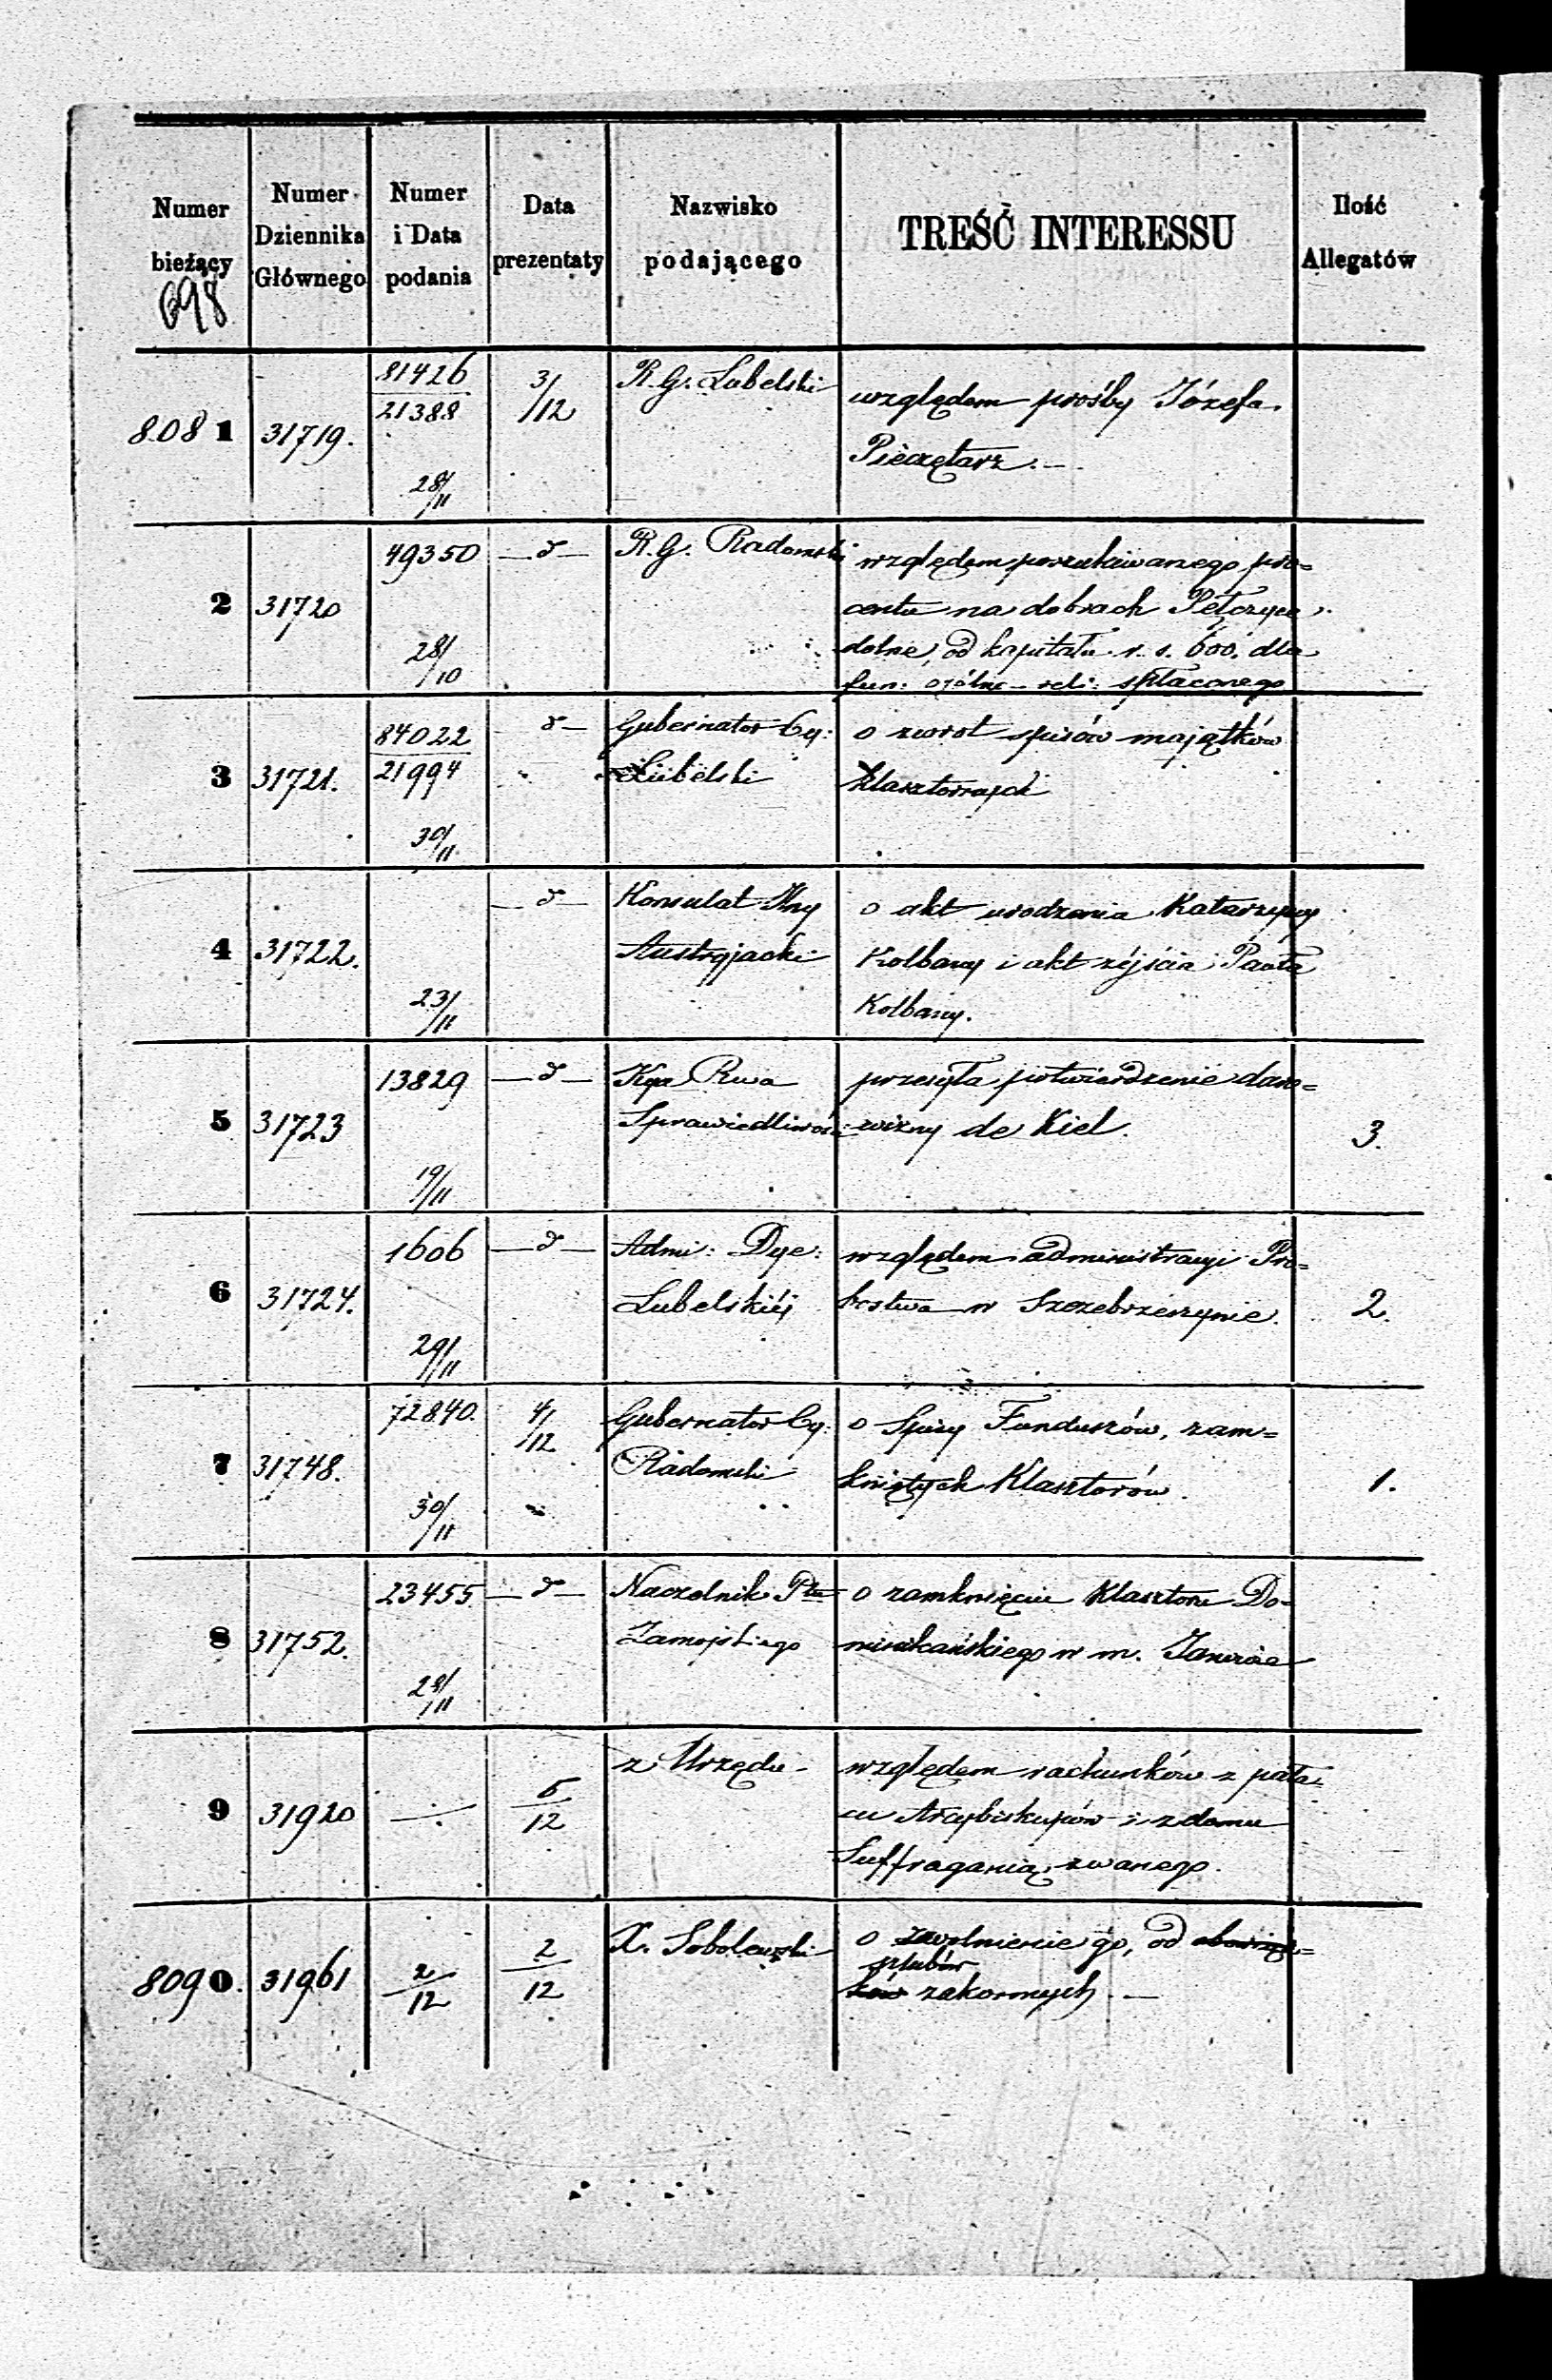 Numer bieżący
Numer Dziennika Głównego
Numer i Data podania
Data prezentaty
Nazwisko podającego
TREŚĆ INTERESSU
Ilość Allegatów
698
8081 31719. 81426 3/12 R. G. Lubelski względem prośby Józefa
21388 Pieczętarz. —
28/11
2 31720 49350 — d — R. G. Radomski względem poszukiwanego pro=
centu na dobrach Pełczyce
28/10 dolne, od kapitału r. s. 600. dla
fun: ogólno – reli: spłaconego
3 31721. 84022 d — Gubernator Cy: o zwrot spisów majątków
21994 Lubelski klasztornych
30/11
4 31722. — d — Konsulat Jlny o akt urodzenia Katarzyny
Austryjacki Kolbany i akt zejścia Pawła
23/11 Kolbany.
5 31723 13829 — d — Kya Rwa przesyła potwierdzenie daro=
Sprawiedliwości wizny de Kiel. 3.
19/11
6 31724. 1606 — d — Admi: Dye: względem administracyi Pro=
Lubelskiéj bostwa w Szczebrzeszynie. 2.
29/11
7 31748. 72840. 4/12 Gubernator Cy: o Spisy Funduszów, zam=
Radomski kniętych Klasztorów. 1.
30/11
8 31752. 23455 — d — Naczelnik Ptu o zamknięciu Klasztoru Do=
Zamojskiego minikańskiego w m. Janowie
28/11
9 31920 — 5/12 z Urzędu – względem rachunków z pała=
cu Arcybiskupów i z domu
Suffraganią zwanego.
8090. 31961 2/12 2/12 X. Sobolewski o zwolnienie go, od obowiąz=
ślubów
ków zakonnych. —